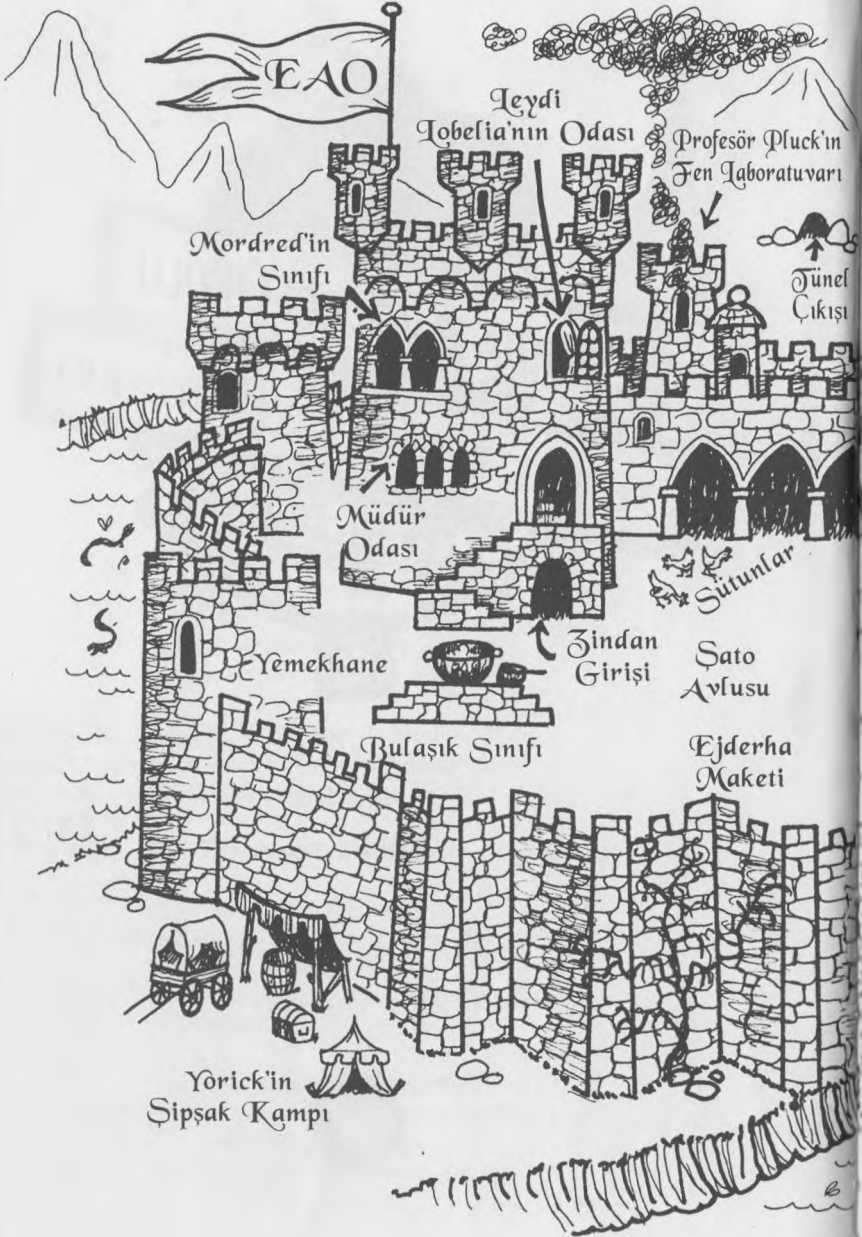 EAO
Leydi
Lobelia'nın Odası
Profesör Pluck'ın
Fen Laboratuvarı
Mordred'in
Sınıfı
Tünel
Çıkışı
Müdür
Odası
Sütunlar
Yemekhane
Zindan
Girişi
Şato
Avlusu
Bulaşık Sınıfı
Ejderha
Maketi
Yorick'in
Şipşak Kampı